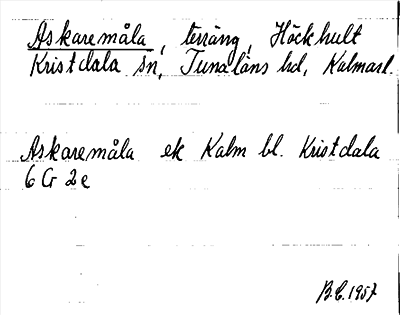 Askaremåla, terräng, Höckhult
Kristdala sn, Tunaläns hd, Kalmarl.
Askaremåla ek Kalm bl. Kristdala
6 G 2 e
B.E. 1957